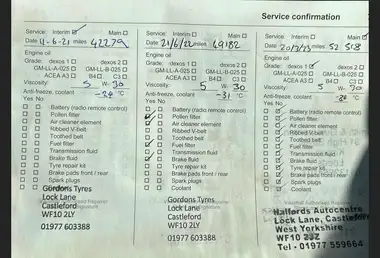 Service confirmation
Service: Interim ☑ Main ☐
Date 4-6-21 miles 42279
Engine oil
Grade: dexos 1 ☐ dexos 2 ☐
GM-LL-A-025 ☐ GM-LL-B-025 ☐
ACEA A3 ☐ B4 ☐ C3 ☐
Viscosity: 5 W- 30
Anti-freeze, coolant °C
Yes No
Battery (radio remote control)
Pollen filter
Air cleaner element
Ribbed V-belt
Toothed belt
Fuel filter
Transmission fluid
Brake fluid
Tyre repair kit
Brake pads front / rear
Spark plugs
Coolant
Gordons Tyres
Lock Lane
Castleford
WF10 2LY
01977 603388
Service: Interim Main
Date 21/6/22 miles 49182
Engine oil
Grade: dexos 1 ☐ dexos 2 ☐
GM-LL-A-025 ☐ GM-LL-B-025 ☐
ACEA A3 ☐ B4 ☐ C3 ☐
Viscosity: 5 W- 30
Anti-freeze, coolant -31 °C
Yes No
Battery (radio remote control)
Pollen filter
Air cleaner element
Ribbed V-belt
Toothed belt
Fuel filter
Transmission fluid
Brake fluid
Tyre repair kit
Brake pads front / rear
Spark plugs
Coolant
Gordons Tyres
Lock Lane
Castleford
WF10 2LY
01977 603388
Service: Interim Main
Date miles 52 518
Engine oil
Grade: dexos 1 dexos 2
GM-LL-A-025 GM-LL-B-025
ACEA A3 B4 C3
Viscosity: 5 W- 30
Anti-freeze, coolant °C
Yes No
Battery (radio remote control)
Pollen filter
Air cleaner element
Ribbed V-belt
Toothed belt
Fuel filter
Transmission fluid
Brake fluid
Tyre repair kit
Brake pads front / rear
Spark plugs
Coolant
Halfords Autocentre
Lock Lane, Castleford
West Yorkshire
WF10
Tel - 01977 559664